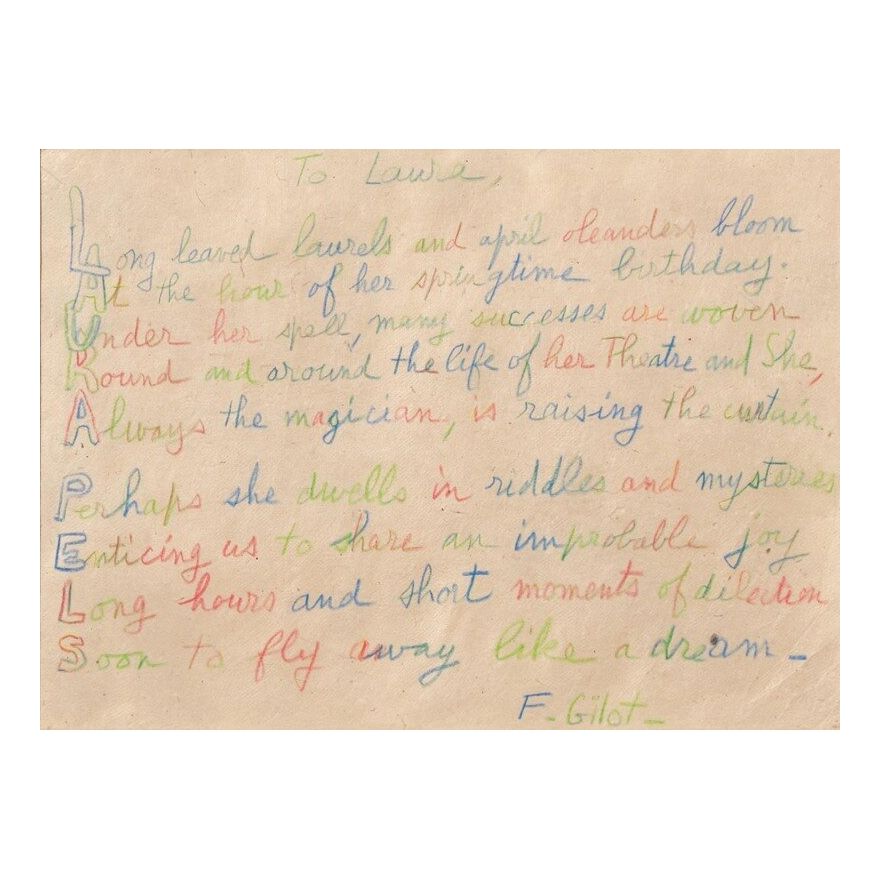 To Laura,
Long leaved laurels and april oleanders bloom
At the hour of her springtime birthday.
Under her spell, many successes are woven
Round and around the life of her Theatre and She,
Always the magician, is raising the curtain.
Perhaps she dwells in riddles and mysteries
Enticing us to share an improbable joy
Long hours and short moments of dilection
Soon to fly away like a dream –
F. Gilot –